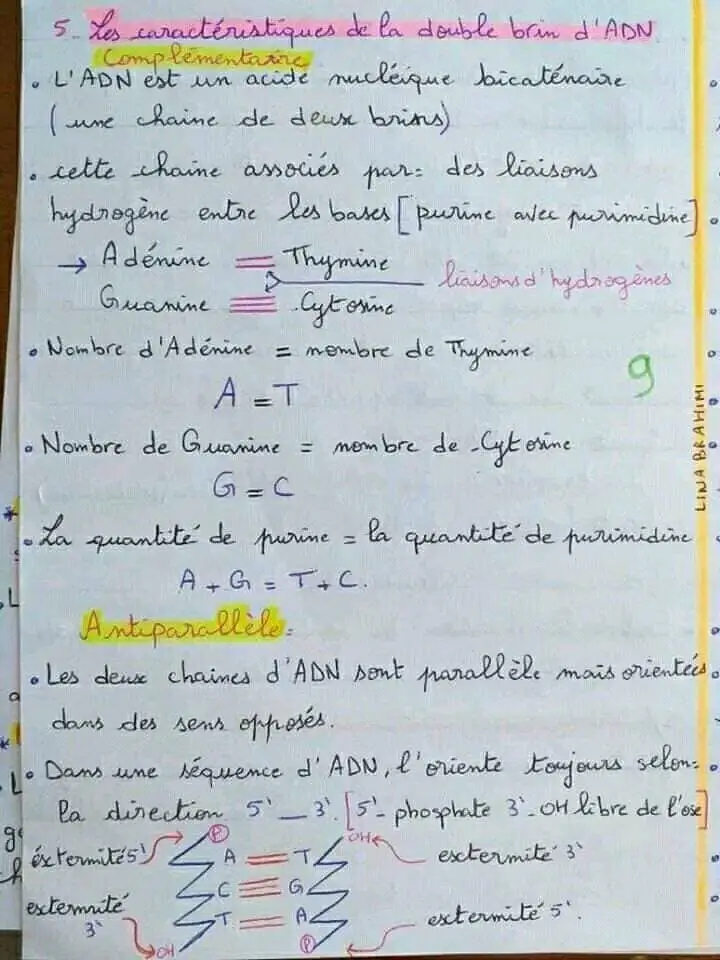 5. Les caractéristiques de la double brin d'ADN
Complémentaire
• L'ADN est un acide nucléique bicaténaire
(une chaine de deux brins)
• cette chaine associés par: des liaisons
hydrogène entre les bases [purine avec purimidine]
→ Adénine = Thymine
liaisons d'hydrogènes
Guanine ≡ Cytosine
• Nombre d'Adénine = nombre de Thymine
A = T
9
• Nombre de Guanine = nombre de Cytosine
G = C
LINA BRAHIMI
• La quantité de purine = la quantité de purimidine
A + G = T + C.
Antiparallèle:
• Les deux chaines d'ADN sont parallèle mais orientées
dans des sens opposés.
• Dans une séquence d'ADN, l'oriente toujours selon:
la direction 5' _ 3'. [5'- phosphate 3'-OH libre de l'ose]
éxtermité 5' P A = T OH extermité 3'
C ≡ G
extermité 3' T = A extermité 5'.
OH P